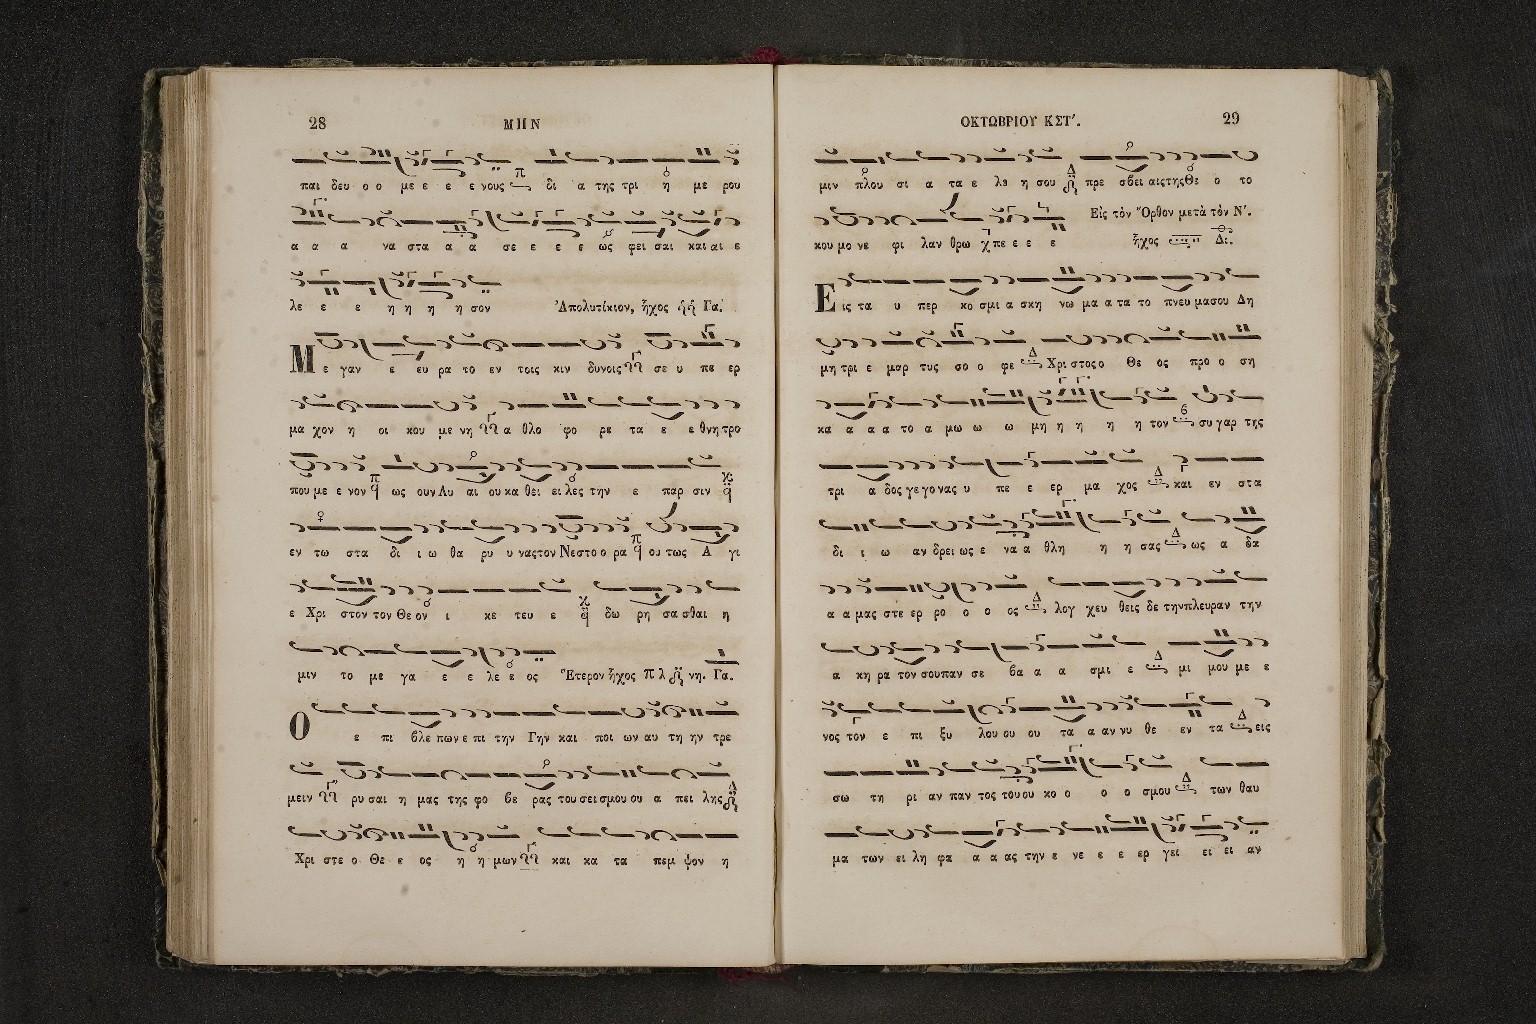 28 ΜΗΝ
παι δευ ο ο με ε ε ε νους δι α της τρι η με ρου
α α α να στα α α σε ε ε ε ως φει σαι και αι ε
λε ε ε η η η η σον Ἀπολυτίκιον, ἦχος Γα.
Μ ε γαν ε ευ ρα το εν τοις κιν δυνοις σε υ πε ερ
μα χον η οι κου με νη α θλο φο ρε τα ε ε θνη τρο
που με ε νον ως ουν Λυ αι ου κα θει ει λες την ε παρ σιν
εν τω στα δι ι ω θα ρυ υ νας τον Νεστο ο ρα ου τως Α γι
ε Χρι στον τον Θε ον ι κε τευ ε δω ρη σα σθαι η
μιν το με γα ε ε λε ε ος Ἕτερον ἦχος πλ νη. Γα.
Ο ε πι βλε πων ε πι την Γην και ποι ων αυ τη ην τρε
μειν ρυ σαι η μας της φο βε ρας του σει σμου ου α πει λης
Χρι στε ο Θε ε ος η η μων και κα τα πεμ ψον η
ΟΚΤΩΒΡΙΟΥ ΚΣΤ΄. 29
μιν πλου σι α τα ε λε η σου πρε σβει αις της Θε ο το
κου μο νε φι λαν θρω χ πε ε ε ε Εἰς τὸν Ὄρθον μετὰ τὸν Ν΄.
ἦχος Δι.
Ε ις τα υ περ κο σμι α σκη νω μα α τα το πνευ μα σου Δη
μη τρι ε μαρ τυς σο ο φε Χρι στος ο Θε ος προ ο ση
κα α α α το α μω ω ω μη η η η η τον συ γαρ της
τρι α δος γε γο νας υ πε ε ερ μα χος και εν στα
δι ι ω αν δρει ως ε να α θλη η η σας ως α δα
α α μας στε ερ ρο ο ο ος λογ χευ θεις δε την πλευραν την
α κη ρα τον σου παν σε βα α α σμι ε μι μου με ε
νος τον ε πι ξυ λου ου ου τα α αν νυ θε εν τα εις
σω τη ρι αν παν τος του ου κο ο ο ο σμου των θαυ
μα των ει λη φα α α ας την ε νε ε ε ερ γει ει ει αν